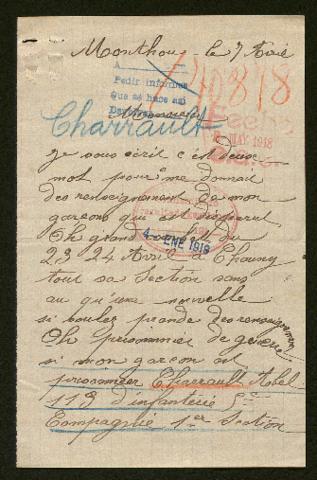 Monthou le 7 Avril
A
Pedir informes
Que se hace así
140818
Charrault
MAY 1918
je vous écrit c'est deux
mot pour me donnai
des renseignement de mon
garçons qui est disparut
Ch grand combat du
23 24 Avril à Chauny
4 ENE 1919
tout sa Section sans
au qu'une nouvelle
si boulez prande des renseignement
Ch prisonnier de geuerre
si mon garçon est
prisonnier Charrault Abel
113 d'infanterie 5e
Compagnie 1er Section